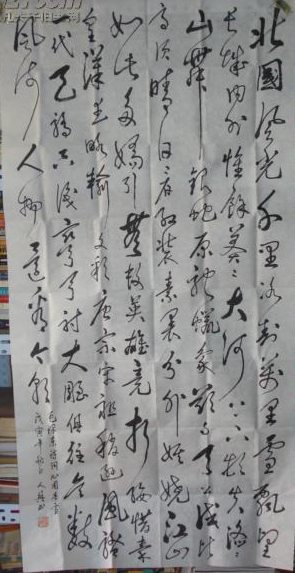 北國風光千里冰封萬里雪飄望
長城內外惟餘莽〻大河上下頓失滔〻
山舞銀蛇原馳蠟象欲與天公試比
高須晴日看紅裝素裹分外妖嬈江山
如此多嬌引無數英雄競折腰惜秦
皇漢武略輸文彩唐宗宋祖稍遜風騷
一代天驕只識彎弓射大雕俱往矣數
風流人物還看今朝
毛澤東詩詞沁園春雪
戊寅年秋月